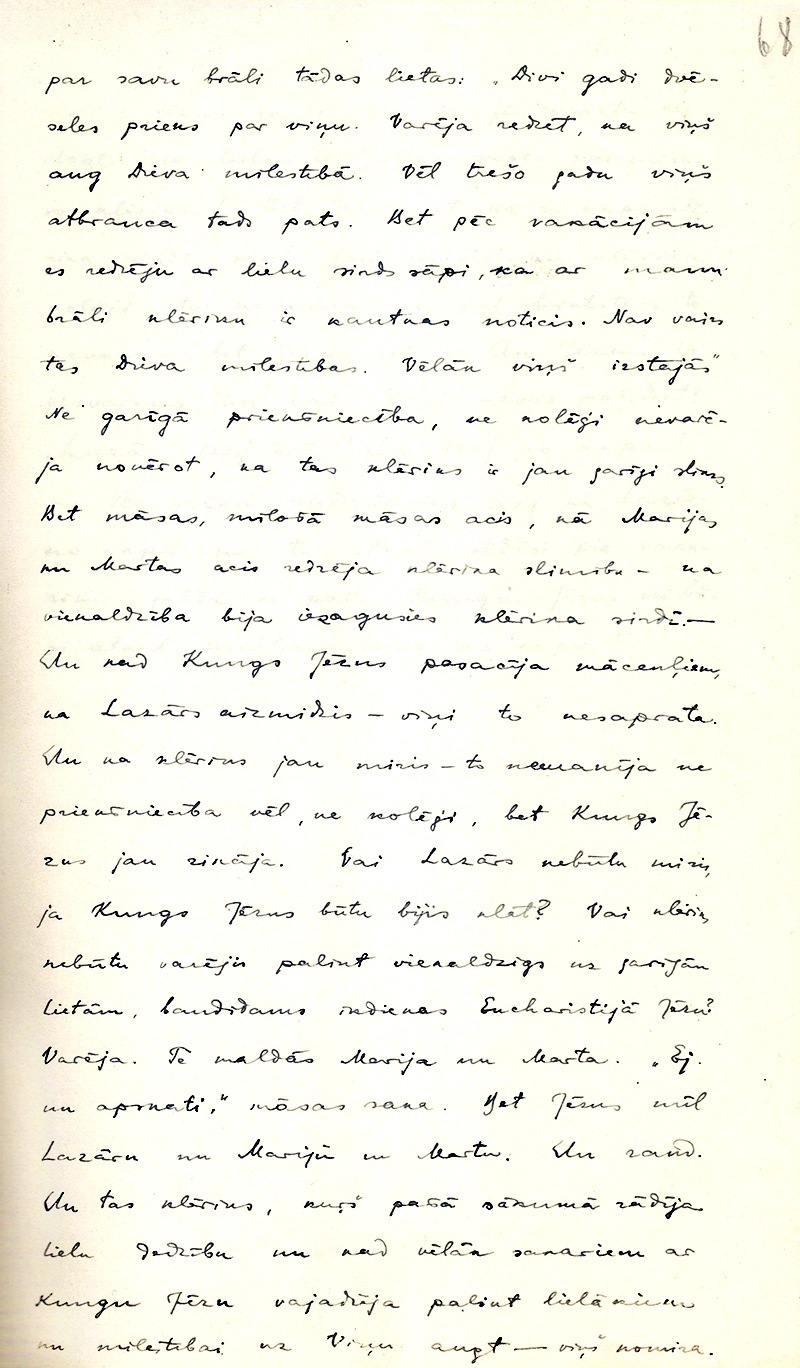 68
par savu brāli tādas lietas: „Divi gadi dvē-
seles prieks par viņu. Varēja redzēt, ka viņš
aug Dieva mīlestībā. Vēl trešo gadu viņš
atbrauca tāds pats. Bet pēc vakācijām
es redzēju ar lielu sirds sāpi, ka ar manu
brāli klēriku ir kautkas noticis. Nav vairs
tās Dieva mīlestības. Vēlāk viņš izstājās"
Ne garīgā priekšniecība, ne kolēģi nevarē-
ja novērot, ka tas klēriks ir jau garīgi slims.
Bet māsas, mīlošā māsas acis, kā Marijas
un Martas acis redzēja klērika slimību – ka
vienaldzība bija iezagusies klērika sirdī. –
Un kad Kungs Jēzus pasacīja mācekļiem,
ka Lazārs aizmidzis – viņi to nesaprata.
Un ka klēriks jau miris – to nemanīja ne
priekšniecība vēl, ne kolēģi, bet Kungs Jē-
zus jau zināja. Vai Lazārs nebūtu miris,
ja Kungs Jēzus būtu bijis klāt? Vai klēriks
nebūtu varējis palikt vienaldzīgs uz garīgām
lietām, baudīdams ikdienas Eucharistijā Jēzu?
Varēja. Te maldās Marija un Marta. „Ej.
un apskati," māsas saka. Bet Jēzus mīl
Lazāru un Mariju un Martu. Un raud.
Un tas klēriks, kurš pašā sākumā rādīja
lielu dedzību un kad vēlāk sakariem ar
Kungu Jēzu vajadzēja palikt lielākiem
un mīlestībai uz Viņu augt — viņš nomira.